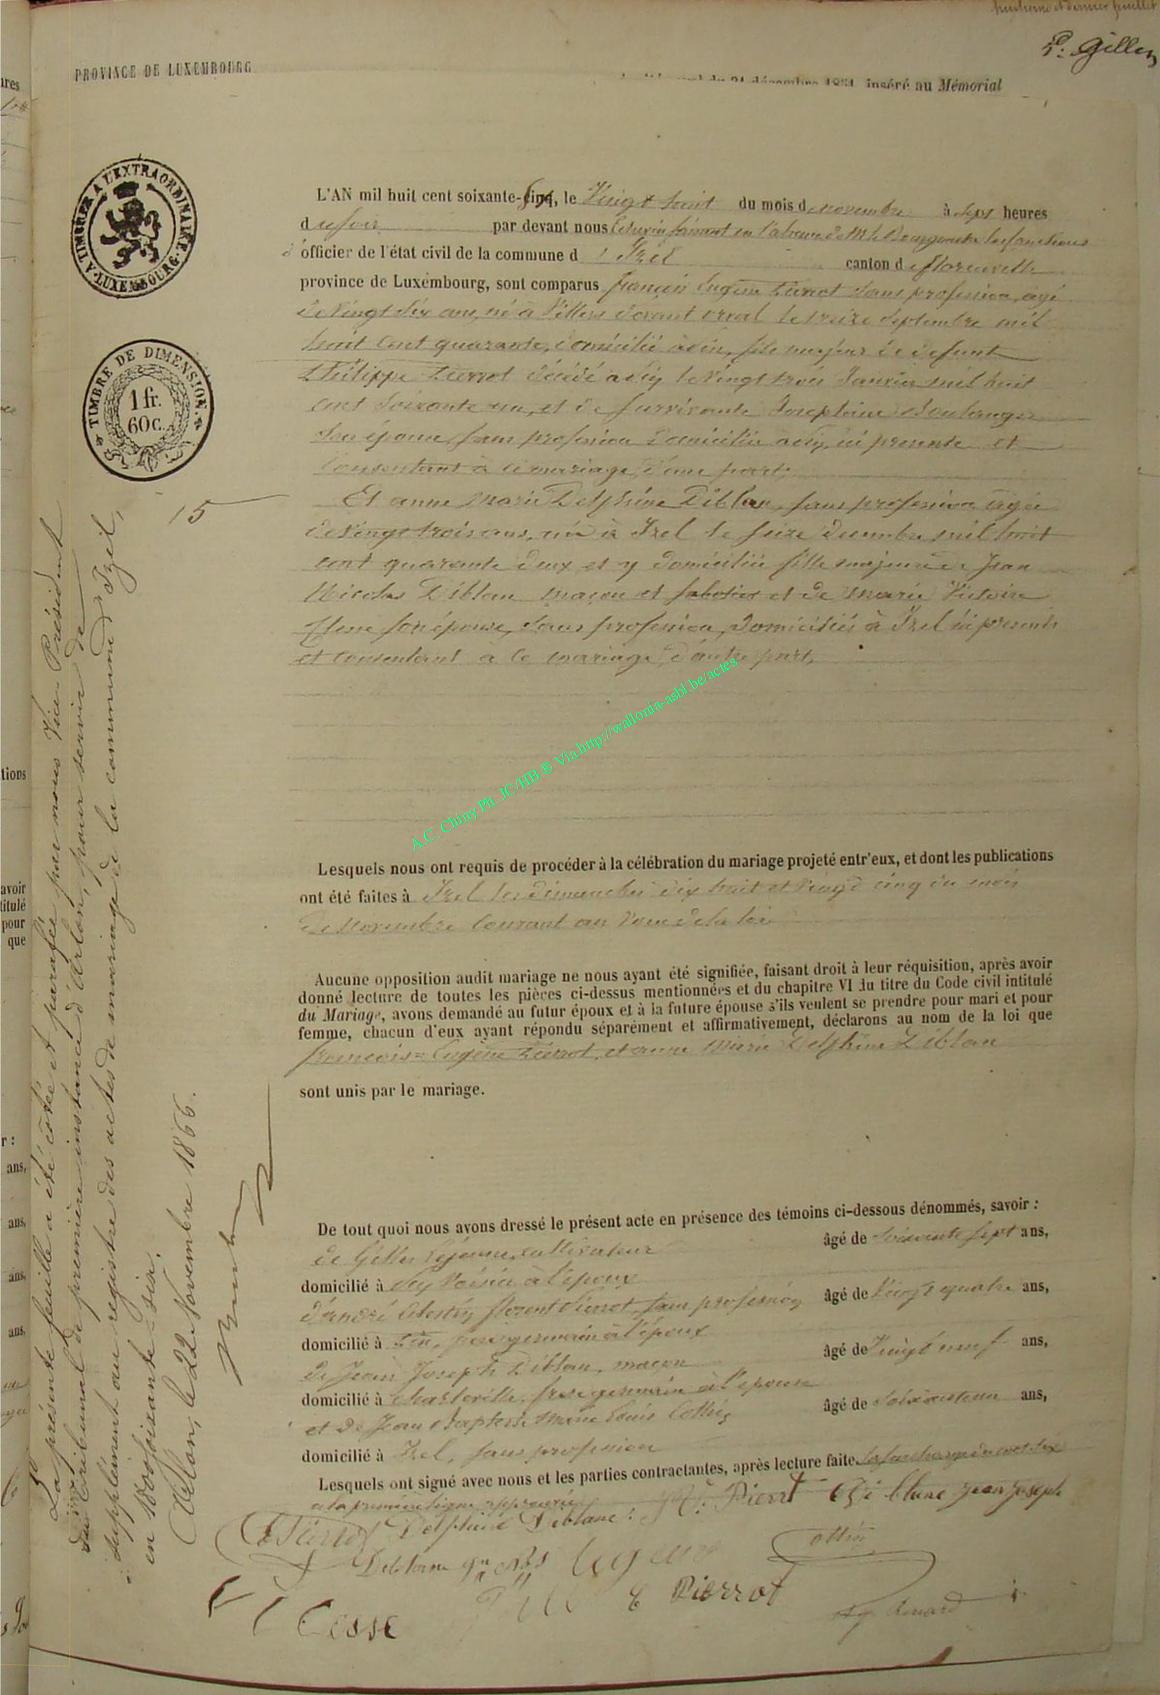 P. Gillen
PROVINCE DE LUXEMBOURG
du 21 décembre 1851, inséré au Mémorial
A TIMBRER A L'EXTRAORDINAIRE
LUXEMBOURG
TIMBRE DE DIMENSION
1 fr.
60 c.
15
L'AN mil huit cent soixante-six, le Vingt huit du mois de novembre à sept heures
du soir par devant nous Echevin faisant en l'absence de Mr le Bourgmestre les fonctions
d'officier de l'état civil de la commune d'Izel canton de florenville
province de Luxembourg, sont comparus françois Eugène Pierrot sans profession, agé
de Vingt six ans, né à Villers devant orval le treize Septembre mil
huit cent quarante, domicilié à , fils majeur de defunt
Philippe Pierrot décédé a le Vingt trois Janvier mil huit
cent soixante un, et de survivante Josephine Boulanger
son épouse, sans profession domiciliée à , ici presente et
Consentant à ce mariage, d'une part;
Et anne Marie Delphine Diblan, sans profession agée
de Vingt trois ans, née à Izel le seize decembre mil huit
cent quarante deux et y domiciliée fille majeure de Jean
Nicolas Diblan maçon et sabotier et de Marie Victoire
son épouse, sans profession, Domiciliés à Izel ici presents
et consentant a ce mariage, d'autre part,
A.C. Chiny Ph. JC/HB © Via http://wallonia-asbl.be/actes
Lesquels nous ont requis de procéder à la célébration du mariage projeté entr'eux, et dont les publications
ont été faites à Izel les dimanches dix huit et Vingt cinq du mois
de Novembre Courant au Vœu de la loi
Aucune opposition audit mariage ne nous ayant été signifiée, faisant droit à leur réquisition, après avoir
donné lecture de toutes les pièces ci-dessus mentionnées et du chapitre VI du titre du Code civil intitulé
du Mariage, avons demandé au futur époux et à la future épouse s'ils veulent se prendre pour mari et pour
femme, chacun d'eux ayant répondu séparément et affirmativement, déclarons au nom de la loi que
françois Eugène Pierrot, et anne Marie Delphine Diblan
sont unis par le mariage.
De tout quoi nous avons dressé le présent acte en présence des témoins ci-dessous dénommés, savoir :
de Gilles Lejeune, cultivateur âgé de soixante sept ans,
domicilié à Voisin à l'époux
d'andré florent Pierrot, sans profession âgé de Vingt quatre ans,
domicilié à frere germain à l'époux
de Jean Joseph Diblan, maçon âgé de Vingt neuf ans,
domicilié à Charleville, frere germain à l'épouse
et de Jean Baptiste Marie Louis Collin âgé de ans,
domicilié à Izel, sans profession
Lesquels ont signé avec nous et les parties contractantes, après lecture faite. la surcharge du mot six
a la premiere ligne approuvée
Pierrot Diblane jean joseph
Delphine Diblane
Collin
E Pierrot
La présente feuille a été cotée et parafée par nous Vice Président
du Tribunal de première instance d'Arlon, pour servir de
supplément au registre des actes de mariage de la commune d'Izel,
en 1800 soixante six.
Arlon, le 22 Novembre 1866.